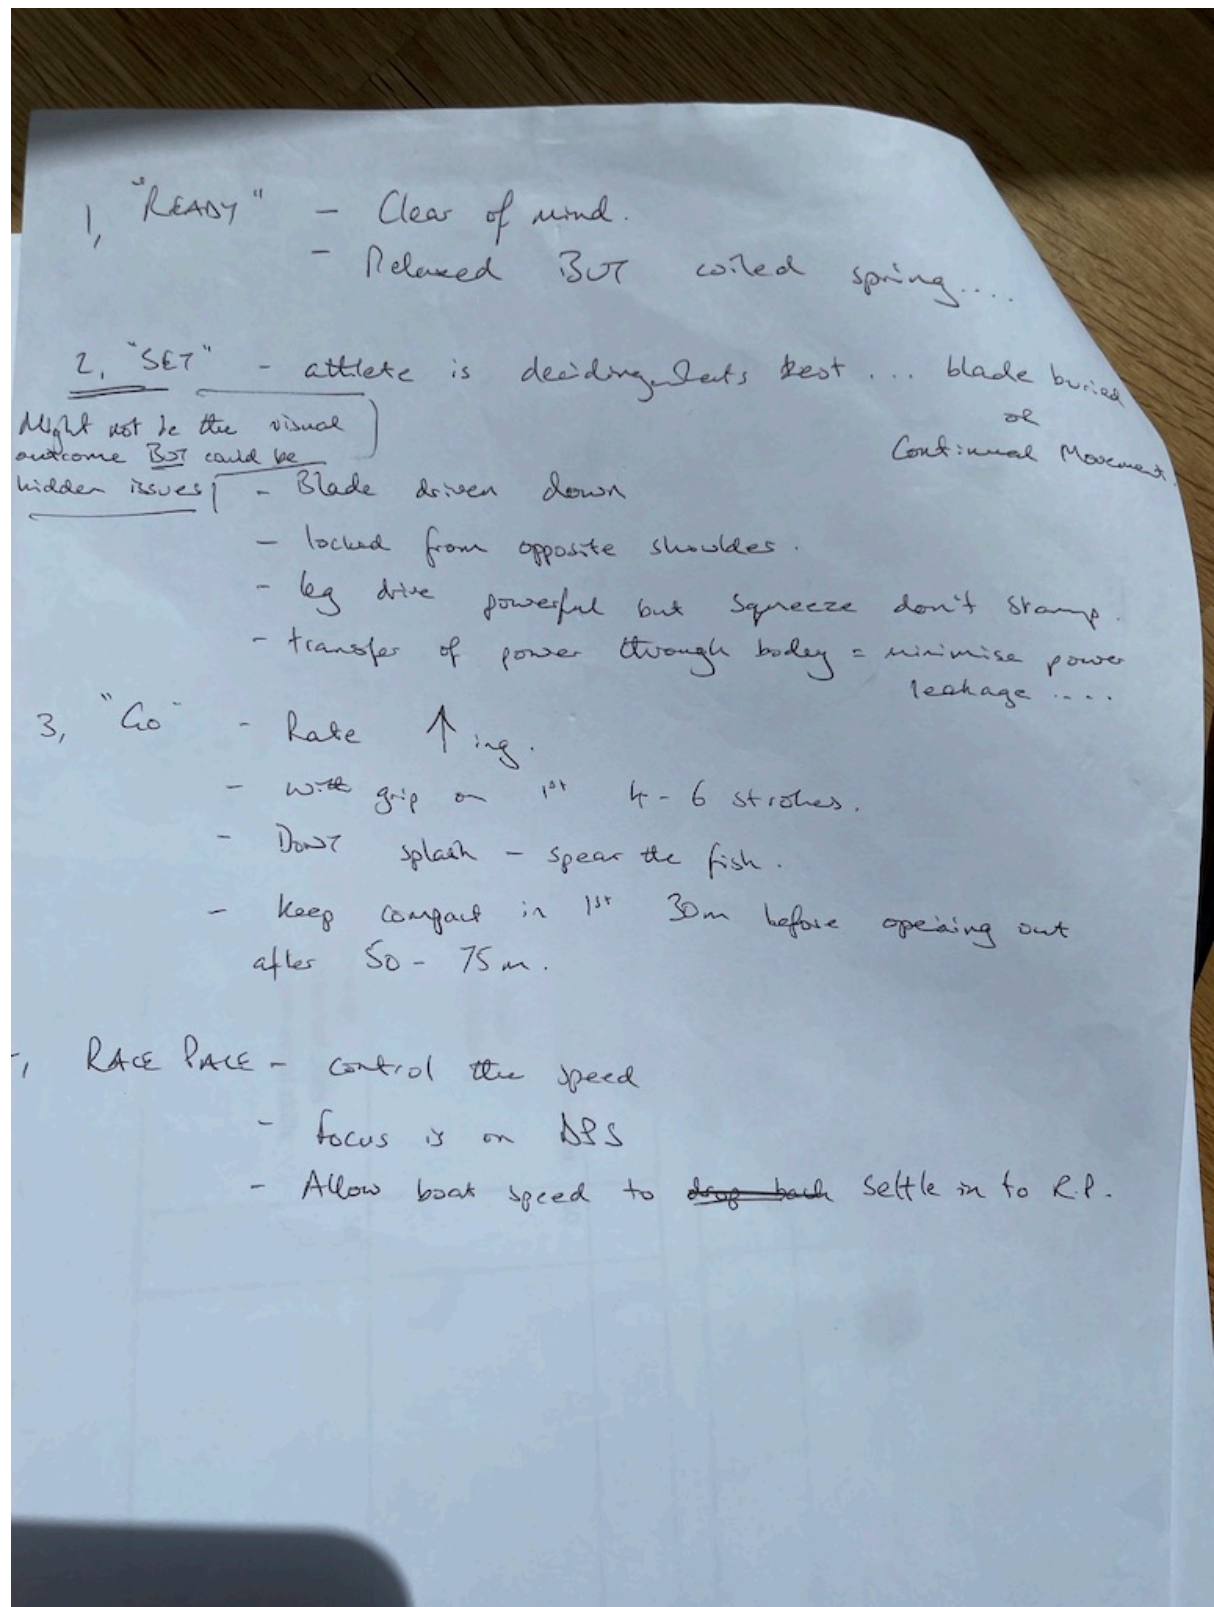 1, "READY" - Clear of mind.
- Relaxed BUT coiled spring....
2, "SET" - athlete is deciding whats best ... blade buried
or
Continual Movement.
Might not be the visual
outcome BUT could be
hidden issues
- Blade driven down
- locked from opposite shoulder.
- leg drive powerful but squeeze don't stamp.
- transfer of power through body = minimise power
leakage ....
3, "Go" - Rate ↑ ing.
- with grip on 1st 4-6 strokes.
- DONT splash - spear the fish.
- Keep compact in 1st 30m before opening out
after 50 - 75m.
, RACE PACE - control the speed
- focus is on DPS
- Allow boat speed to drop back settle in to R.P.